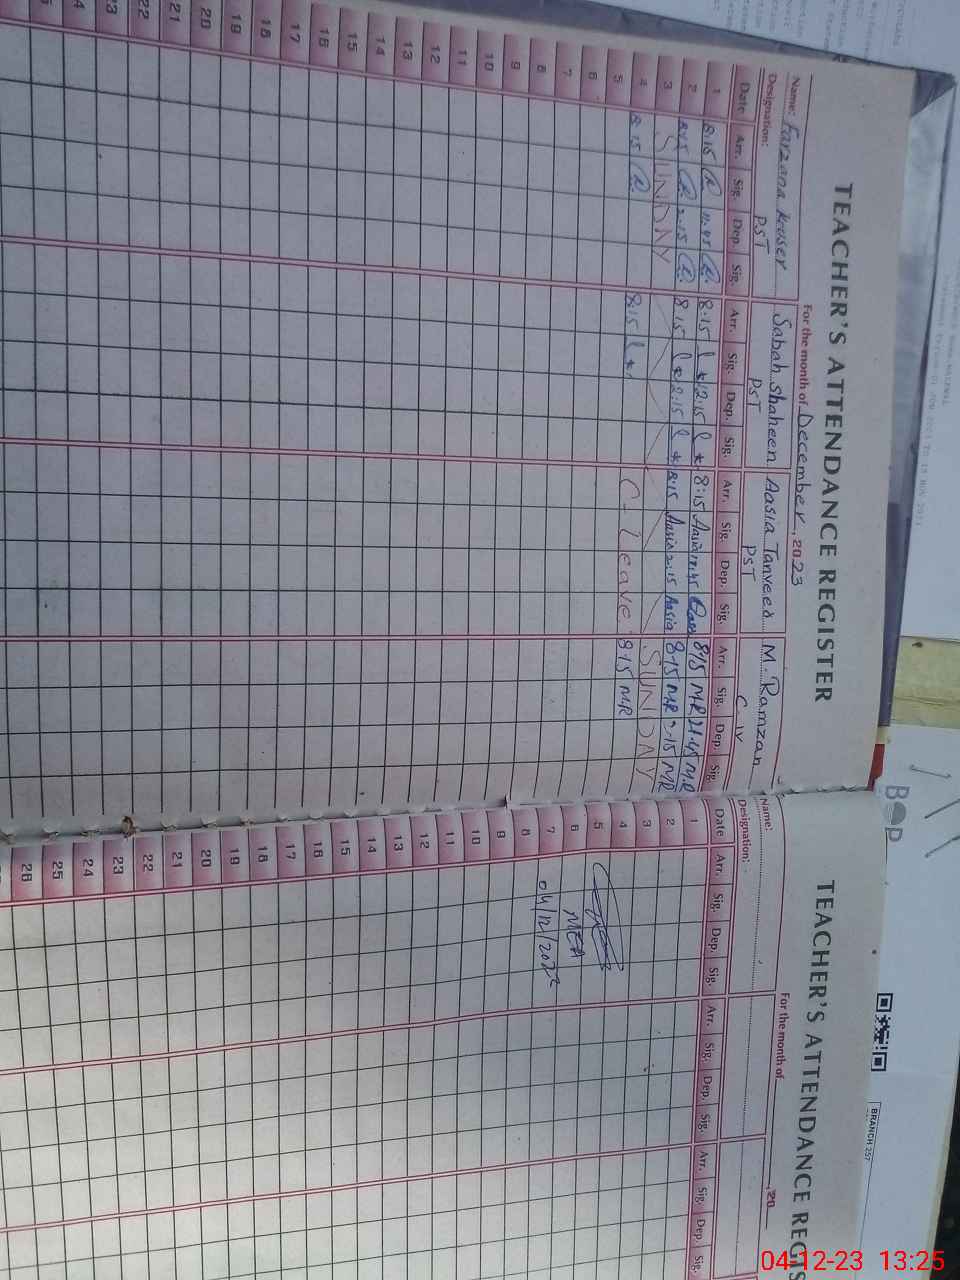 TEACHER'S ATTENDANCE REGISTER
For the month of December, 2023
Name: Farzana Kouser Sabah Shaheen Aasia Tanveer M. Ramzan
Designation: PST PST PST C-IV
Date Arr. Sig. Dep. Sig. Arr. Sig. Dep. Sig. Arr. Sig. Dep. Sig. Arr. Sig. Dep. Sig.
1 8:15 12:45 8:15 12:15 8:15 Aasia 12:45 8:15 MR MR
2 8:15 2:15 8:15 2:15 8:15 Aasia 2:15 Aasia 8:15 MR 2:15 MR
3 SUNDAY SUNDAY
4 8:15 8:15 C-Leave 8:15 MR
5
6
7
8
9
10
11
12
13
14
15
16
17
18
19
20
21
22
TEACHER'S ATTENDANCE REGIS
For the month of 20
Name:
Designation:
Date Arr. Sig. Dep. Sig. Arr. Sig. Dep. Sig. Arr. Sig. Dep. Sig.
1
2
3
4
5
6 MEA
7 04/12/2023
8
9
10
11
12
13
14
15
16
17
18
19
20
21
22
23
24
25
26
BOP
BRANCH 257
04-12-23 13:25